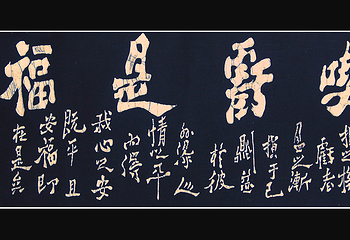 虧是福
虧者
盈之漸
損于己
則益
於彼
外得人
情之平
内得
我心之安
既平且
安福即
在是矣